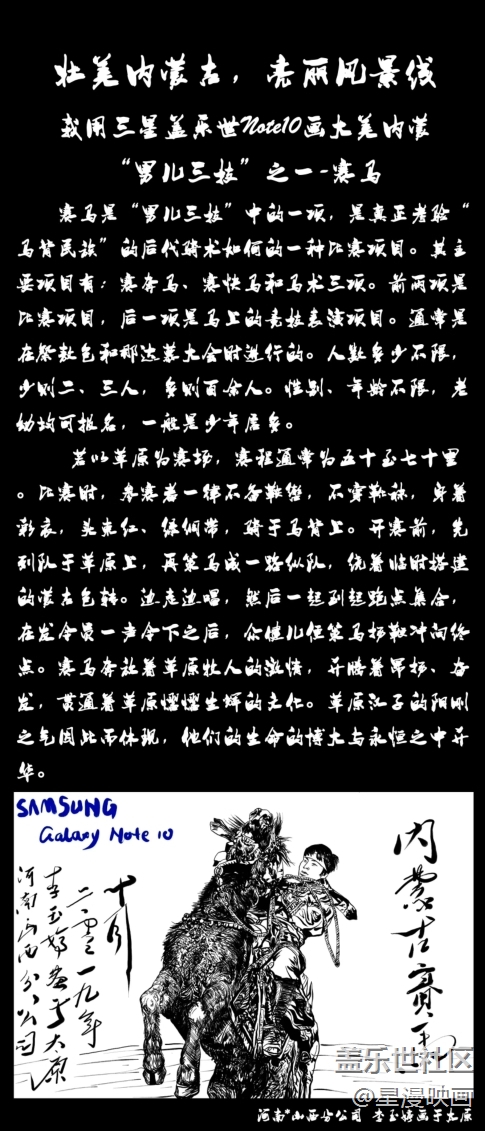 壮美内蒙古，亮丽风景线
我用三星盖乐世Note10画大美内蒙
“男儿三技”之一-赛马
赛马是“男儿三技”中的一项，是真正考验“
马背民族”的后代骑术如何的一种比赛项目。其主
要项目有：赛奔马、赛快马和马术三项。前两项是
比赛项目，后一项是马上的竞技表演项目。通常是
在祭敖包和那达慕大会时进行的。人数多少不限，
少则二、三人，多则百余人。性别、年龄不限，老
幼均可报名，一般是少年居多。
若以草原为赛场，赛程通常为五十至七十里
。比赛时，参赛者一律不备鞍辔，不穿靴袜，身着
彩衣，头束红、绿绸带，骑于马背上。开赛前，先
列队于草原上，再策马成一路纵队，绕着临时搭建
的蒙古包转。边走边唱，然后一起到起跑点集合，
在发令员一声令下之后，众健儿便策马扬鞭冲向终
点。赛马奔放着草原牡人的激情，升腾着昂扬、奋
发，贯通着草原熠熠生辉的文化。草原江子的阳刚
之气因此而体现，他们的生命的博大与永恒之中升
华。
SAMSUNG
Galaxy Note 10
内蒙古赛马
十月
二零一九年
李玉婷画于太原
河南山西分公司
盖乐世社区
@星漫映画
河南*山西分公司 李玉婷画于太原